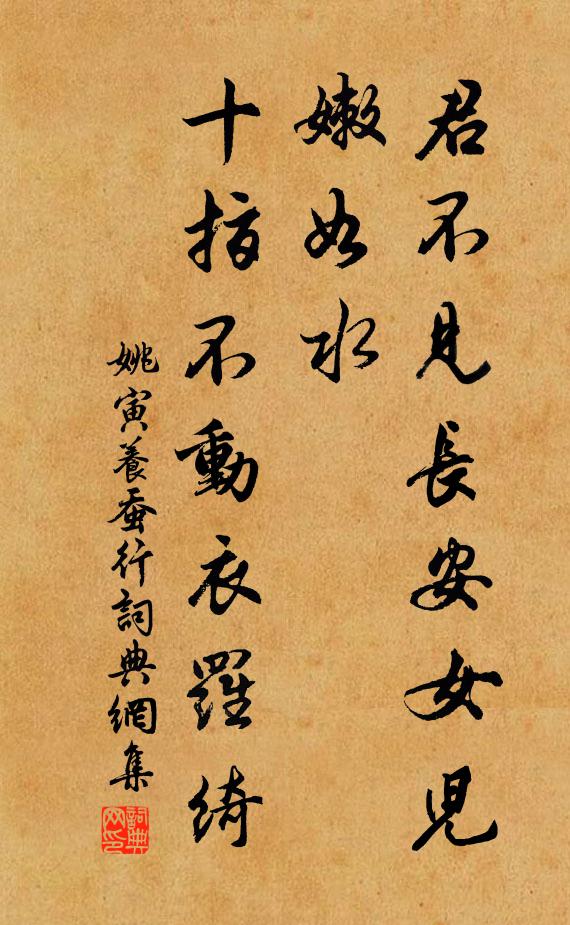 君不見長安女兒
嫩如水
十指不動衣羅綺
姚寅養蚕行詞典網集
詞典网印